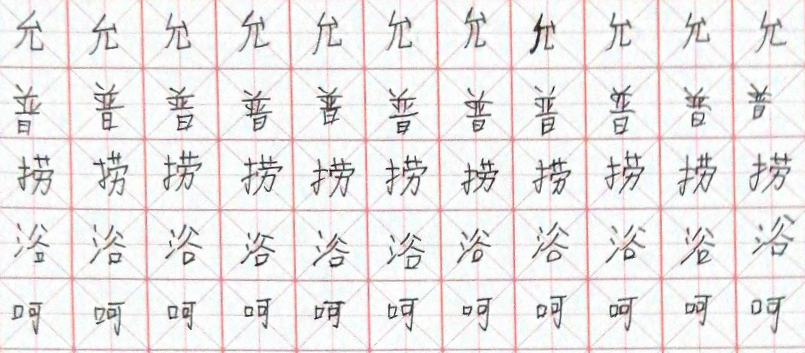 允允允允允允允允允允允
普普普普普普普普普普普
捞捞捞捞捞捞捞捞捞捞捞
浴浴浴浴浴浴浴浴浴浴浴
呵呵呵呵呵呵呵呵呵呵呵